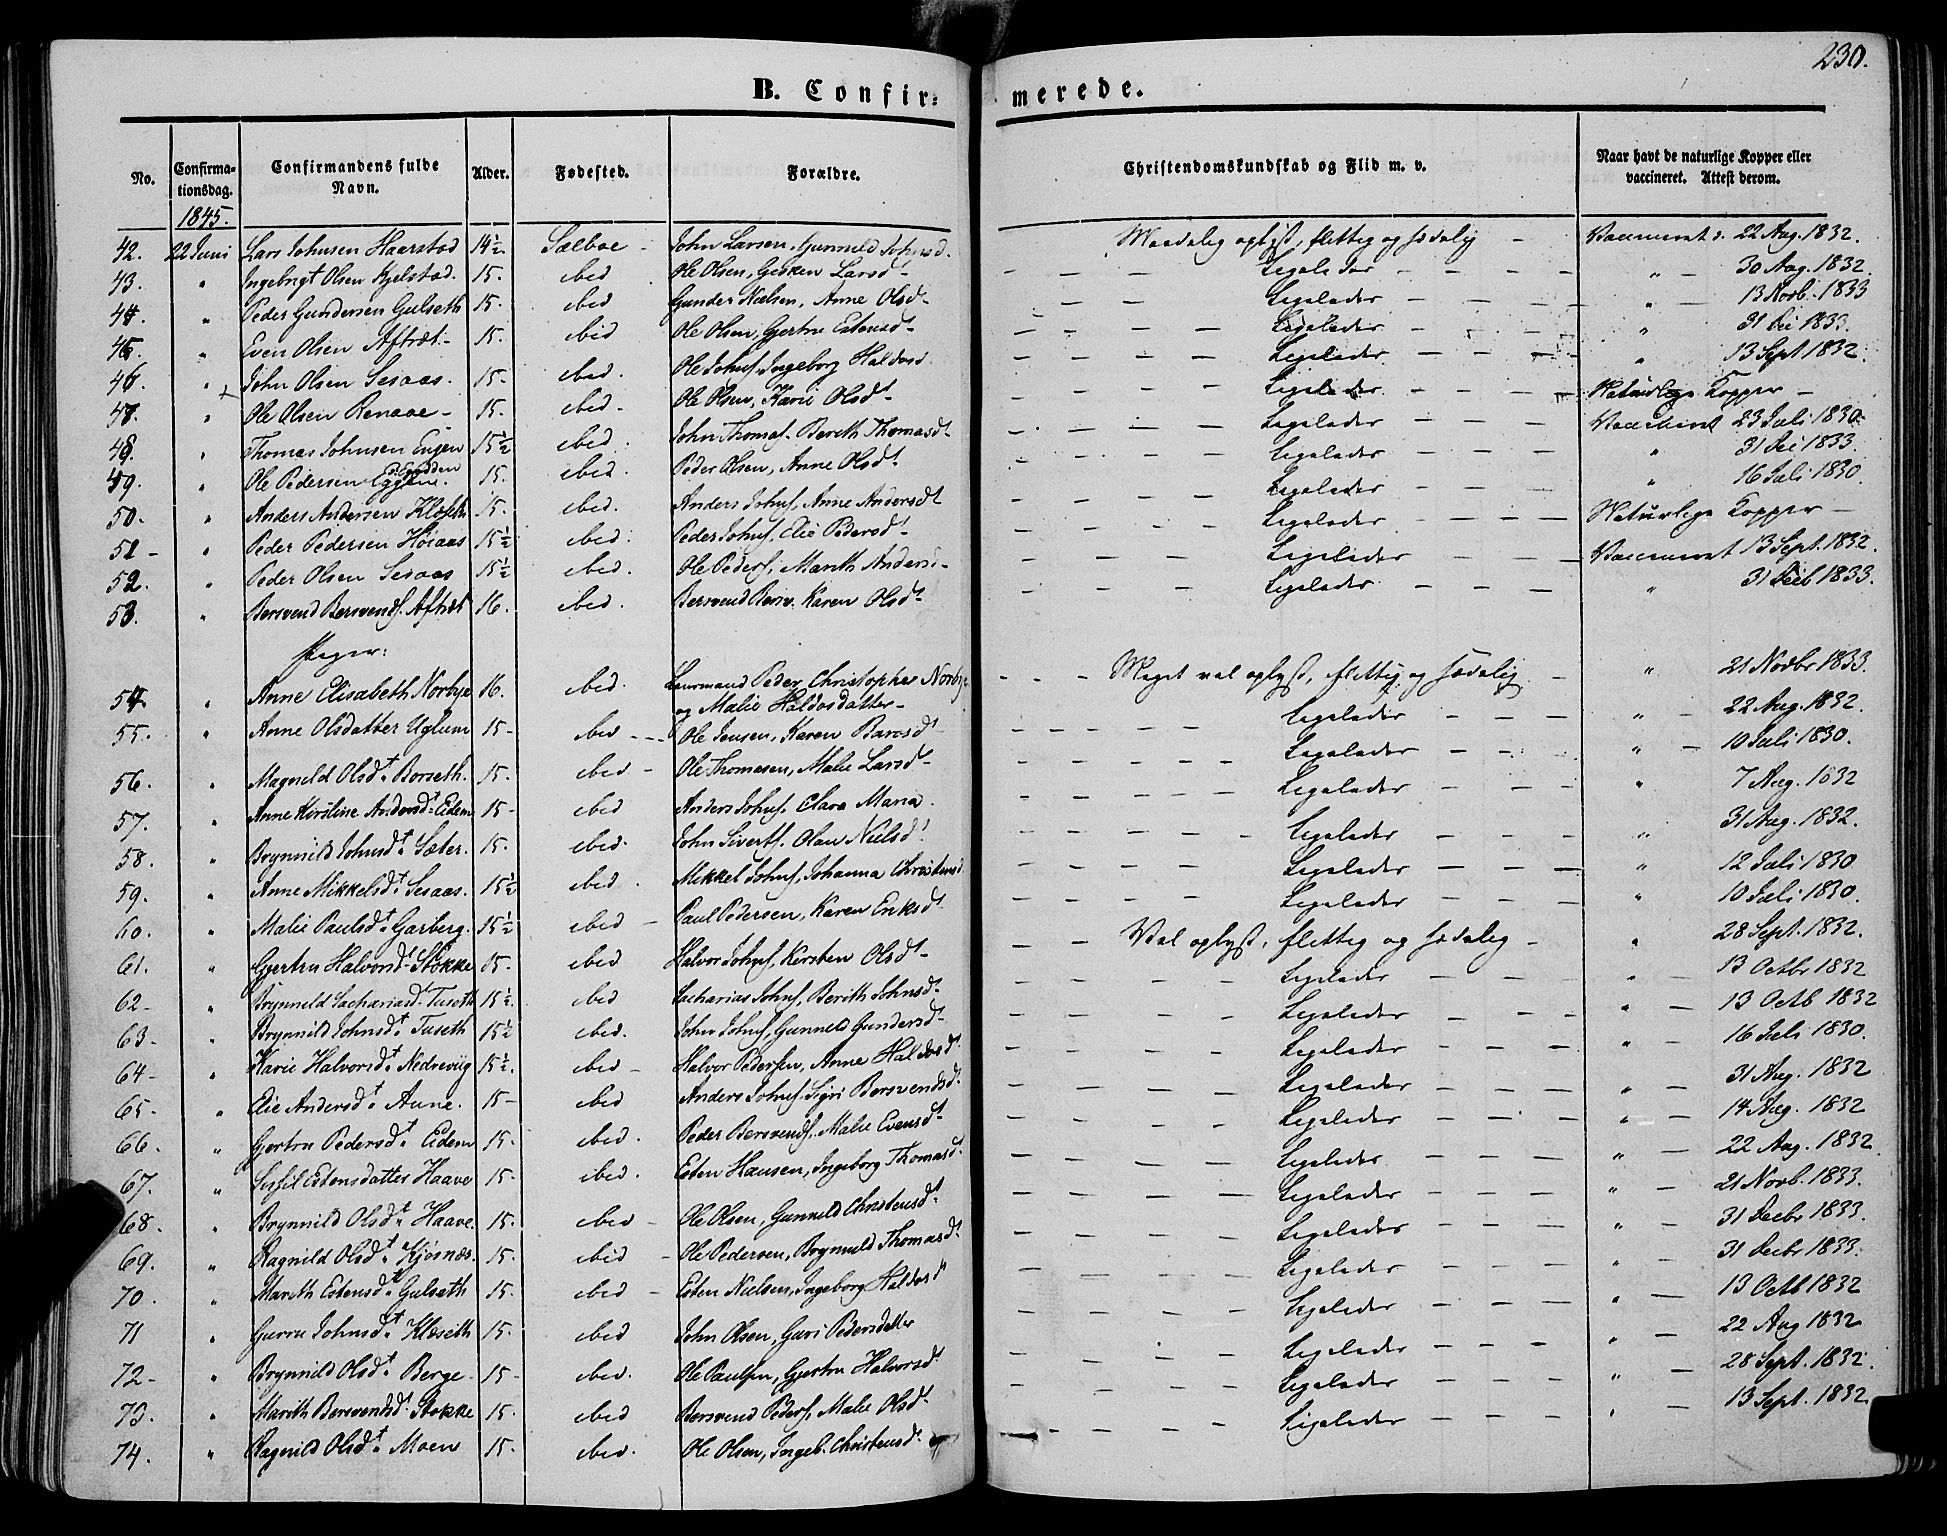 230.
B. Confirmerede.
No. Confirmationsdag. Confirmandens fulde Navn. Alder. Fødested. Forældre. Christendomskundskab og Flid m. v. Naar havt de naturlige Kopper eller vaccineret. Attest derom.
1845.
42. 22 Juni Lars Johnsen Haarstad 14½ Sælboe - John Larsen, Gunnild Maadelig oplyst, flittig og sædelig - Vaccineret d. 22 Aug. 1832.
43. " Ingebrigt Olsen Kjelstad. 15. ibid Ole Olsen, Larsd- Ligeledes " - 30 Aug. 1832.
44. " Peder Gundersen Gulseth 15. ibid Gunder Nielsen, Anne Olsd- Ligeledes " 13 Novb. 1833
45. " Even Olsen Aftræt- 15. ibid Ole Olsen, Gjertru Estensd- Ligeledes " 31 Dec 1833.
46. " John Olsen Sesaas. 15. ibid. Ole Johns. Ingeborg Haldosd Ligeledes " 13 Sept 1832.
47. " Ole Olsen Renaae- 15. ibid. Ole Olsen, Karii Olsdt- Ligeledes Naturlige Kopper -
48. " Thomas Johnsen Engen 15½ ibid. John Thomas. Berith Thomasdt- Ligeledes Vaccineret 23 Juli 1830.
49. " Ole Pedersen 15. ibid. Peder Olsen, Anne Olsdt. Ligeledes " 31 Dec 1833.
50. " Anders Andersen Klæseth 15. ibid. Anders Johns. Anne Andersdt Ligeledes " 16 Juli 1830.
51- " Peder Pedersen Høiaas 15½ ibid. Peder Johns. Elie Pedersdt- Ligeledes Naturlige Kopper -
52. " Peder Olsen Sesaas 15½ ibid. Ole Peders. Marith Andersd- Ligeledes Vaccineret 13 Sept. 1832.
53. " Bersvend Bersvends. Aftræt 16. ibid. Bersvend Bersv. Karen Olsdt Ligeledes " 31 Decb 1833.
Piger:
54. " Anne Elisabeth Norbye 16. ibid. Peder Christopher Norbye Meget vel oplyst, flittig og sædelig - " 21 Novbr 1833.
og Malie Haldosdatter-
55. " Anne Olsdatter Uglum 15- ibid - Ole Jensen, Karen Ligeledes " - 22 Aug. 1832.
56. " Magnild Olsdt. Borseth. 15. ibid - Ole Thomesen, Malie Larsdt- Ligeledes " - 10 Juli 1830.
57. " Anne Kirstine Andersdt. Eidem 15- ibid Anders Johns. Clara Maria. Ligeledes " 7 Aug. 1832
58. " Brynnild Johnsdt. Sæter. 15. ibid. John Siverts. Nielsdt Ligeledes " 31 Aug. 1832.
59. " Anne Mikkelsdt. Sesaas. 15½ ibid. Mikkel Johns, Johanna Christensd Ligeledes " 12 Juli 1830
60. " Malie Paulsdt. Garberg. 15½ ibid - Paul Pedersen, Karen Eriksdt Ligeledes " 10 Juli 1830.
61. " Gjertru Halvorsdt. Stokke 15- ibid Halvor Johns, Kirsten Olsdt- Vel oplyst, flittig og sædelig - " 28 Sept. 1832.
62- " Brynnild Sachariasdt. Tuseth 15½. ibid Sacharias Johns, Berith Johnsdt. Ligeledes " - 13 Octbr 1832
63- " Brynnild Johnsdt. Tuseth 15½ ibid. John Johns, Gunnild Gundersdt- Ligeledes " - 13 Octb 1832
64- " Karii Halvorsdt. Nedreviig 15½. ibid - Halvor Pedersen, Anne Haldosdt. Ligeledes " - 16 Juli 1830.
65- " Elie Andersdt. Aune. 15- ibid Anders Johns. Sigri Bersvendsdt. Ligeledes " - 31 Aug. 1832
66- " Gjertru Pedersdt. Eidem 15. ibid. Peder Bersvends. Malie Evensdt- Ligeledes " - 14 Aug. 1832
67. " Estensdatter Haave 15. ibid. Esten Hansen, Ingeborg Thomasdt. Ligeledes " - 22 Aug. 1832.
68- " Brynnild Olsdt. Haave. 15. ibid - Ole Olsen, Gunnild Christensdt. Ligeledes " - 21 Novb. 1833.
69. " Ragnild Olsdt. Kjøsnæs. 15. ibid - Ole Pedersen, Brynnild Thomasdt. Ligeledes " - 31 Decbr 1833.
70. " Marith Estensdt. Gulseth 15. ibid - Esten Nielsen, Ingeborg Haldosdt Ligeledes " - 31 Decbr 1833.
71 " Gurru Johnsdt. Klæseth 15. ibid John Olsen, Guri Pedersdatter Ligeledes " - 13 Octb 1832
72- " Brynnild Olsdt. Berge- 15- ibid. Ole Paulsen, Gjertru Halvorsdt Ligeledes " - 22 Aug 1832
73. " Marith Bersvendsdt. Stokke 15. ibid Bersvend Peders, Malie Olsdt- Ligeledes " - 28 Sept. 1832.
74. " Ragnild Olsdt. Moen 15. ibid. Ole Olsen, Ingeb. Christensdt. Ligeledes " - 13 Sept. 1832